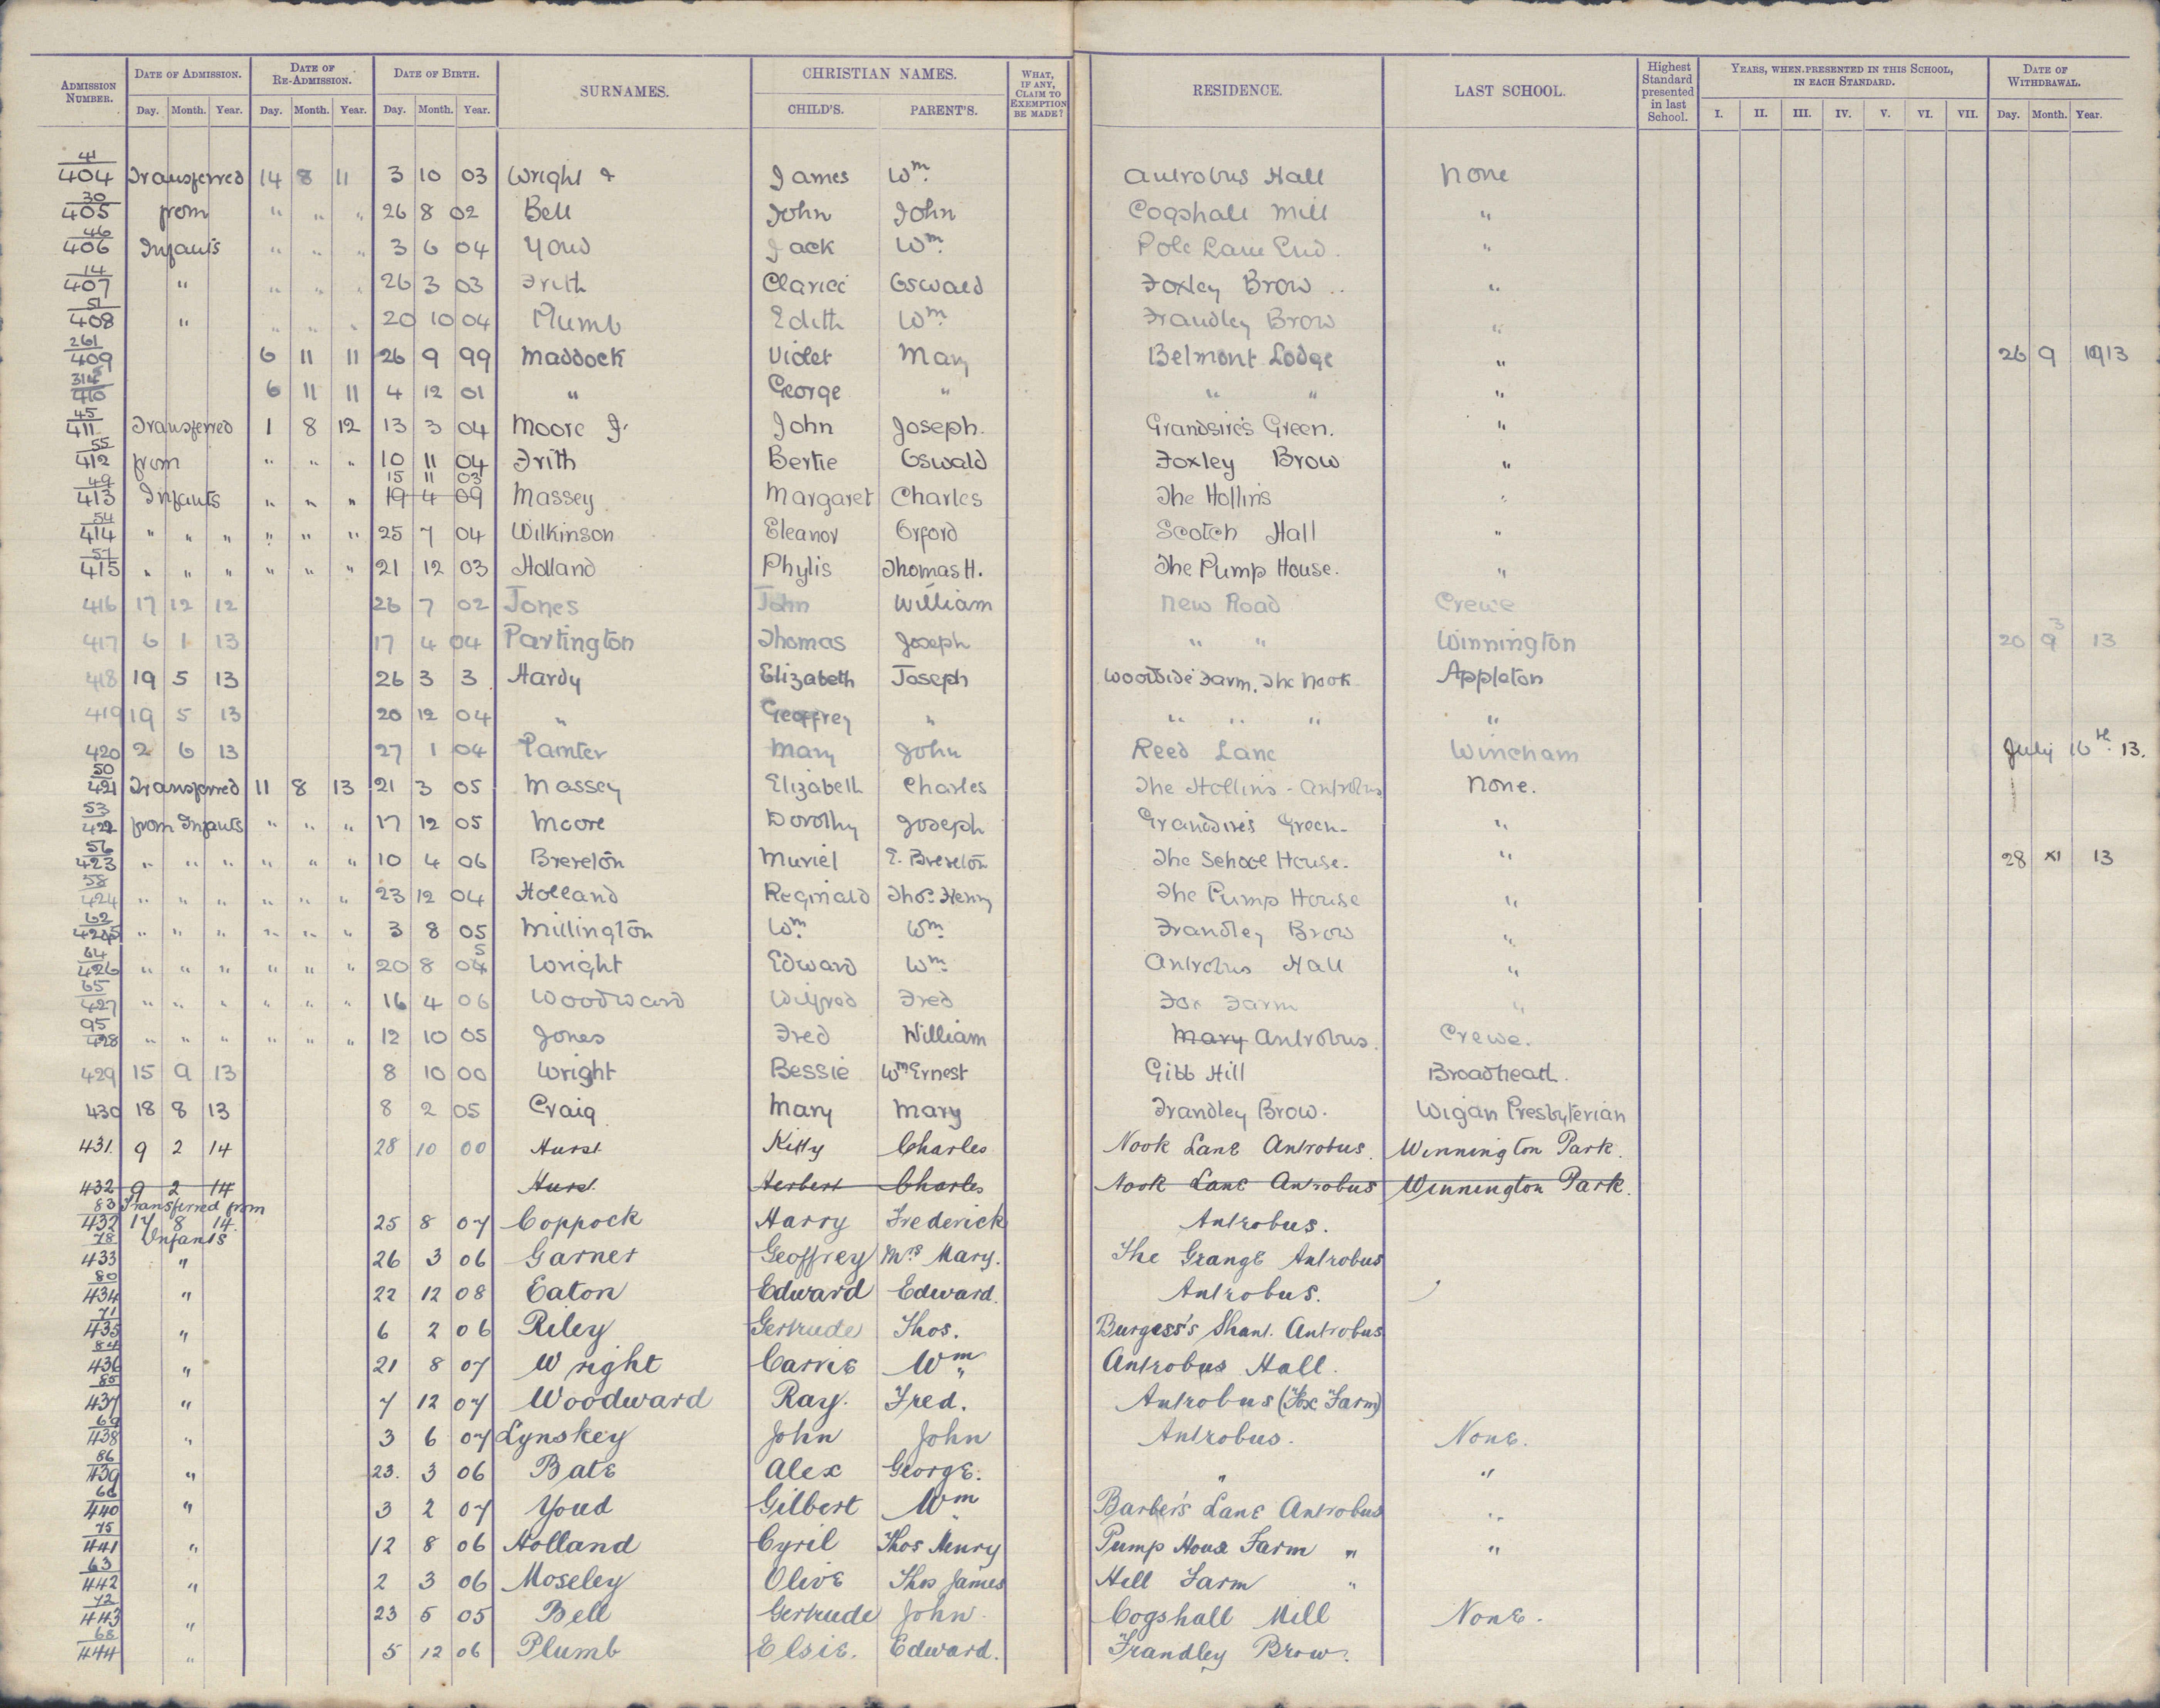 ADMISSION NUMBER. DATE OF ADMISSION. DATE OF RE-ADMISSION. DATE OF BIRTH. SURNAMES. CHRISTIAN NAMES. WHAT, IF ANY, CLAIM TO EXEMPTION BE MADE? RESIDENCE. LAST SCHOOL. Highest Standard presented in last School. YEARS, WHEN PRESENTED IN THIS SCHOOL, IN EACH STANDARD. DATE OF WITHDRAWAL.
Day. Month. Year. Day. Month. Year. Day. Month. Year. CHILD'S. PARENT'S. I. II. III. IV. V. VI. VII. Day. Month. Year.
41/404 Transferred 14 8 11 3 10 03 Wright James Wm. Antrobus Hall None
30/405 from " " " 26 8 02 Bell John John Cogshall Mill "
46/406 Infants " " " 3 6 04 Youd Jack Wm. Pole Lane End. "
14/407 " " " " 26 3 03 Frith Clarice Oswald Foxley Brow "
51/408 " " " " 20 10 04 Plumb Edith Wm. Frandley Brow "
261/409 6 11 11 26 9 99 Maddock Violet Mary Belmont Lodge " 26 9 1913
410 6 11 11 4 12 01 " George " " " "
45/411 Transferred 1 8 12 13 3 04 Moore J. John Joseph. Grandsire's Green. "
55/412 from " " " 10 11 04 Frith Bertie Oswald Foxley Brow "
15 11 03
49/413 Infants " " " 19 4 09 Massey Margaret Charles The Hollins "
54/414 " " " " " " 25 7 04 Wilkinson Eleanor Orford Scotch Hall "
57/415 " " " " " " 21 12 03 Holland Phylis Thomas H. The Pump House. "
416 17 12 12 26 7 02 Jones John William New Road Crewe
417 6 1 13 17 4 04 Partington Thomas Joseph " " Winnington 20 9 3 13
418 19 5 13 26 3 3 Hardy Elizabeth Joseph Woodside Farm, The Nook Appleton
419 19 5 13 20 12 04 " Geoffrey " " " " "
420 2 6 13 27 1 04 Painter Mary John Reed Lane Wincham July 16th. 13.
50/421 Transferred 11 8 13 21 3 05 Massey Elizabeth Charles The Hollins - Antrobus None.
53/422 from Infants " " " 17 12 05 Moore Dorothy Joseph Grandsire's Green - "
56/423 " " " " " " 10 4 06 Brereton Muriel E. Brereton The School House. " 28 XI 13
58/424 " " " " " " 23 12 04 Holland Reginald Thos. Henry The Pump House "
62/425 " " " " " " 3 8 05 Millington Wm. Wm. Frandley Brow "
64/426 " " " " " " 20 8 04 5 Wright Edward Wm. Antrobus Hall "
65/427 " " " " " " 16 4 06 Woodward Wilfred Fred Fox Farm "
95/428 " " " " " " 12 10 05 Jones Fred William Mary Antrobus. Crewe.
429 15 9 13 8 10 00 Wright Bessie Wm Ernest Gibb Hill Broadheath.
430 18 8 13 8 2 05 Craig Mary Mary Frandley Brow. Wigan Presbyterian
431. 9 2 14 28 10 00 Hurst Kitty Charles Nook Lane Antrobus. Winnington Park.
432 9 2 14 Hurst Herbert Charles Nook Lane Antrobus Winnington Park.
Transferred from
83/432 17 8 14. 25 8 07 Coppock Harry Frederick Antrobus.
Infants
78/433 " 26 3 06 Garner Geoffrey Mrs Mary. The Grange Antrobus
80/434 " 22 12 08 Eaton Edward Edward. Antrobus.
71/435 " 6 2 06 Riley Gertrude Thos. Burgess's Shant. Antrobus
84/436 " 21 8 07 Wright Carrie Wm Antrobus Hall.
85/437 " 7 12 07 Woodward Ray. Fred. Antrobus (Fox Farm)
69/438 " 3 6 07 Lynskey John John Antrobus. None.
86/439 " 23. 3 06 Bate Alex George. " "
66/440 " 3 2 07 Youd Gilbert Wm Barber's Lane Antrobus "
75/441 " 12 8 06 Holland Cyril Thos Henry Pump House Farm " "
63/442 " 2 3 06 Moseley Olive Thos James Hill Farm "
72/443 " 23 5 05 Bell Gertrude John. Cogshall Mill None.
68/444 " 5 12 06 Plumb Elsie. Edward. Frandley Brow.